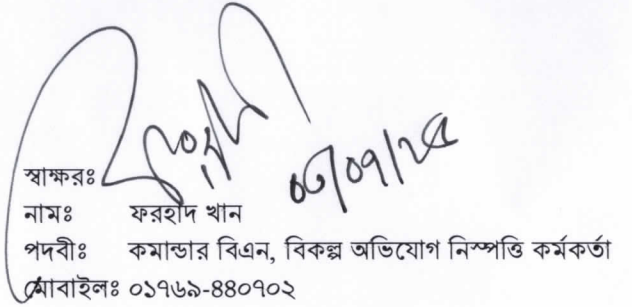 স্বাক্ষরঃ
০৬/০৭/২৫
নামঃ ফরহাদ খান
পদবীঃ কমান্ডার বিএন, বিকল্প অভিযোগ নিস্পত্তি কর্মকর্তা
মোবাইলঃ ০১৭৬৯-৪৪০৭০২